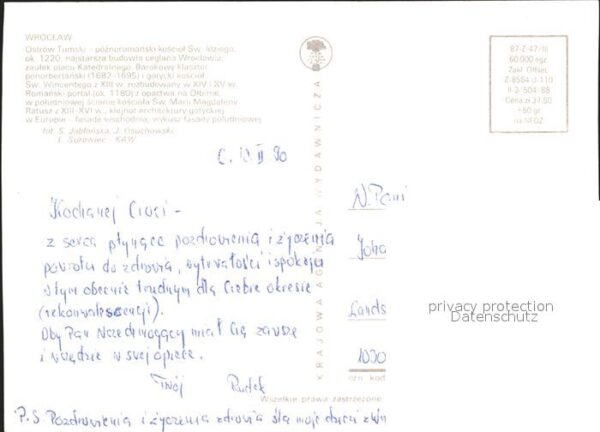 WROCŁAW
Ostrów Tumski - późnoromański kościół Św. Idziego,
ok. 1220, najstarsza budowla ceglana Wrocławia;
zaułek placu Katedralnego. Barokowy klasztor
ponorbertański (1682-1695) i gotycki kościół
Św. Wincentego z XIII w. rozbudowany w XIV i XV w.
Romański portal (ok. 1180) z opactwa na Ołbinie,
w południowej ścianie kościoła Św. Marii Magdaleny
Ratusz z XIII-XVI w., klejnot architektury gotyckiej
w Europie - fasada wschodnia, wykusz fasady południowej
fot. S. Jabłońska, J. Osuchowski,
E. Surowiec - KAW
KRAJOWA AGENCJA WYDAWNICZA
87-Z-47/III
60 000 egz.
Zakł. Offset.
II-3/504/88
Cena zł 31,50
+50 gr
na NFOZ
10 II 90
Kochanej Cioci -
z serca płynące pozdrowienia i życzenia
powrotu do zdrowia, wytrwałości i spokoju
w tym obecnie trudnym dla Ciebie okresie
(rekonwalescencji).
Oby Pan Wszechmogący miał Cię zawsze
i wszędzie w swej opiece.
Twój Rudek
P.S. Pozdrowienia i życzenia zdrowia dla
W. Pani
Joha
Lands
1030
ozn. kod
Wszelkie prawa zastrzeżone
privacy protection
Datenschutz